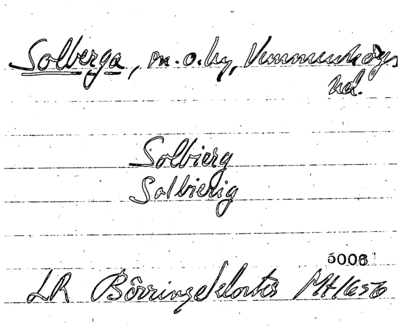 Solberga, sn. o. by, Vemmenhögs
hd.
Solbierg
Solbierig
5006
LR Börringekloster Mt 1656